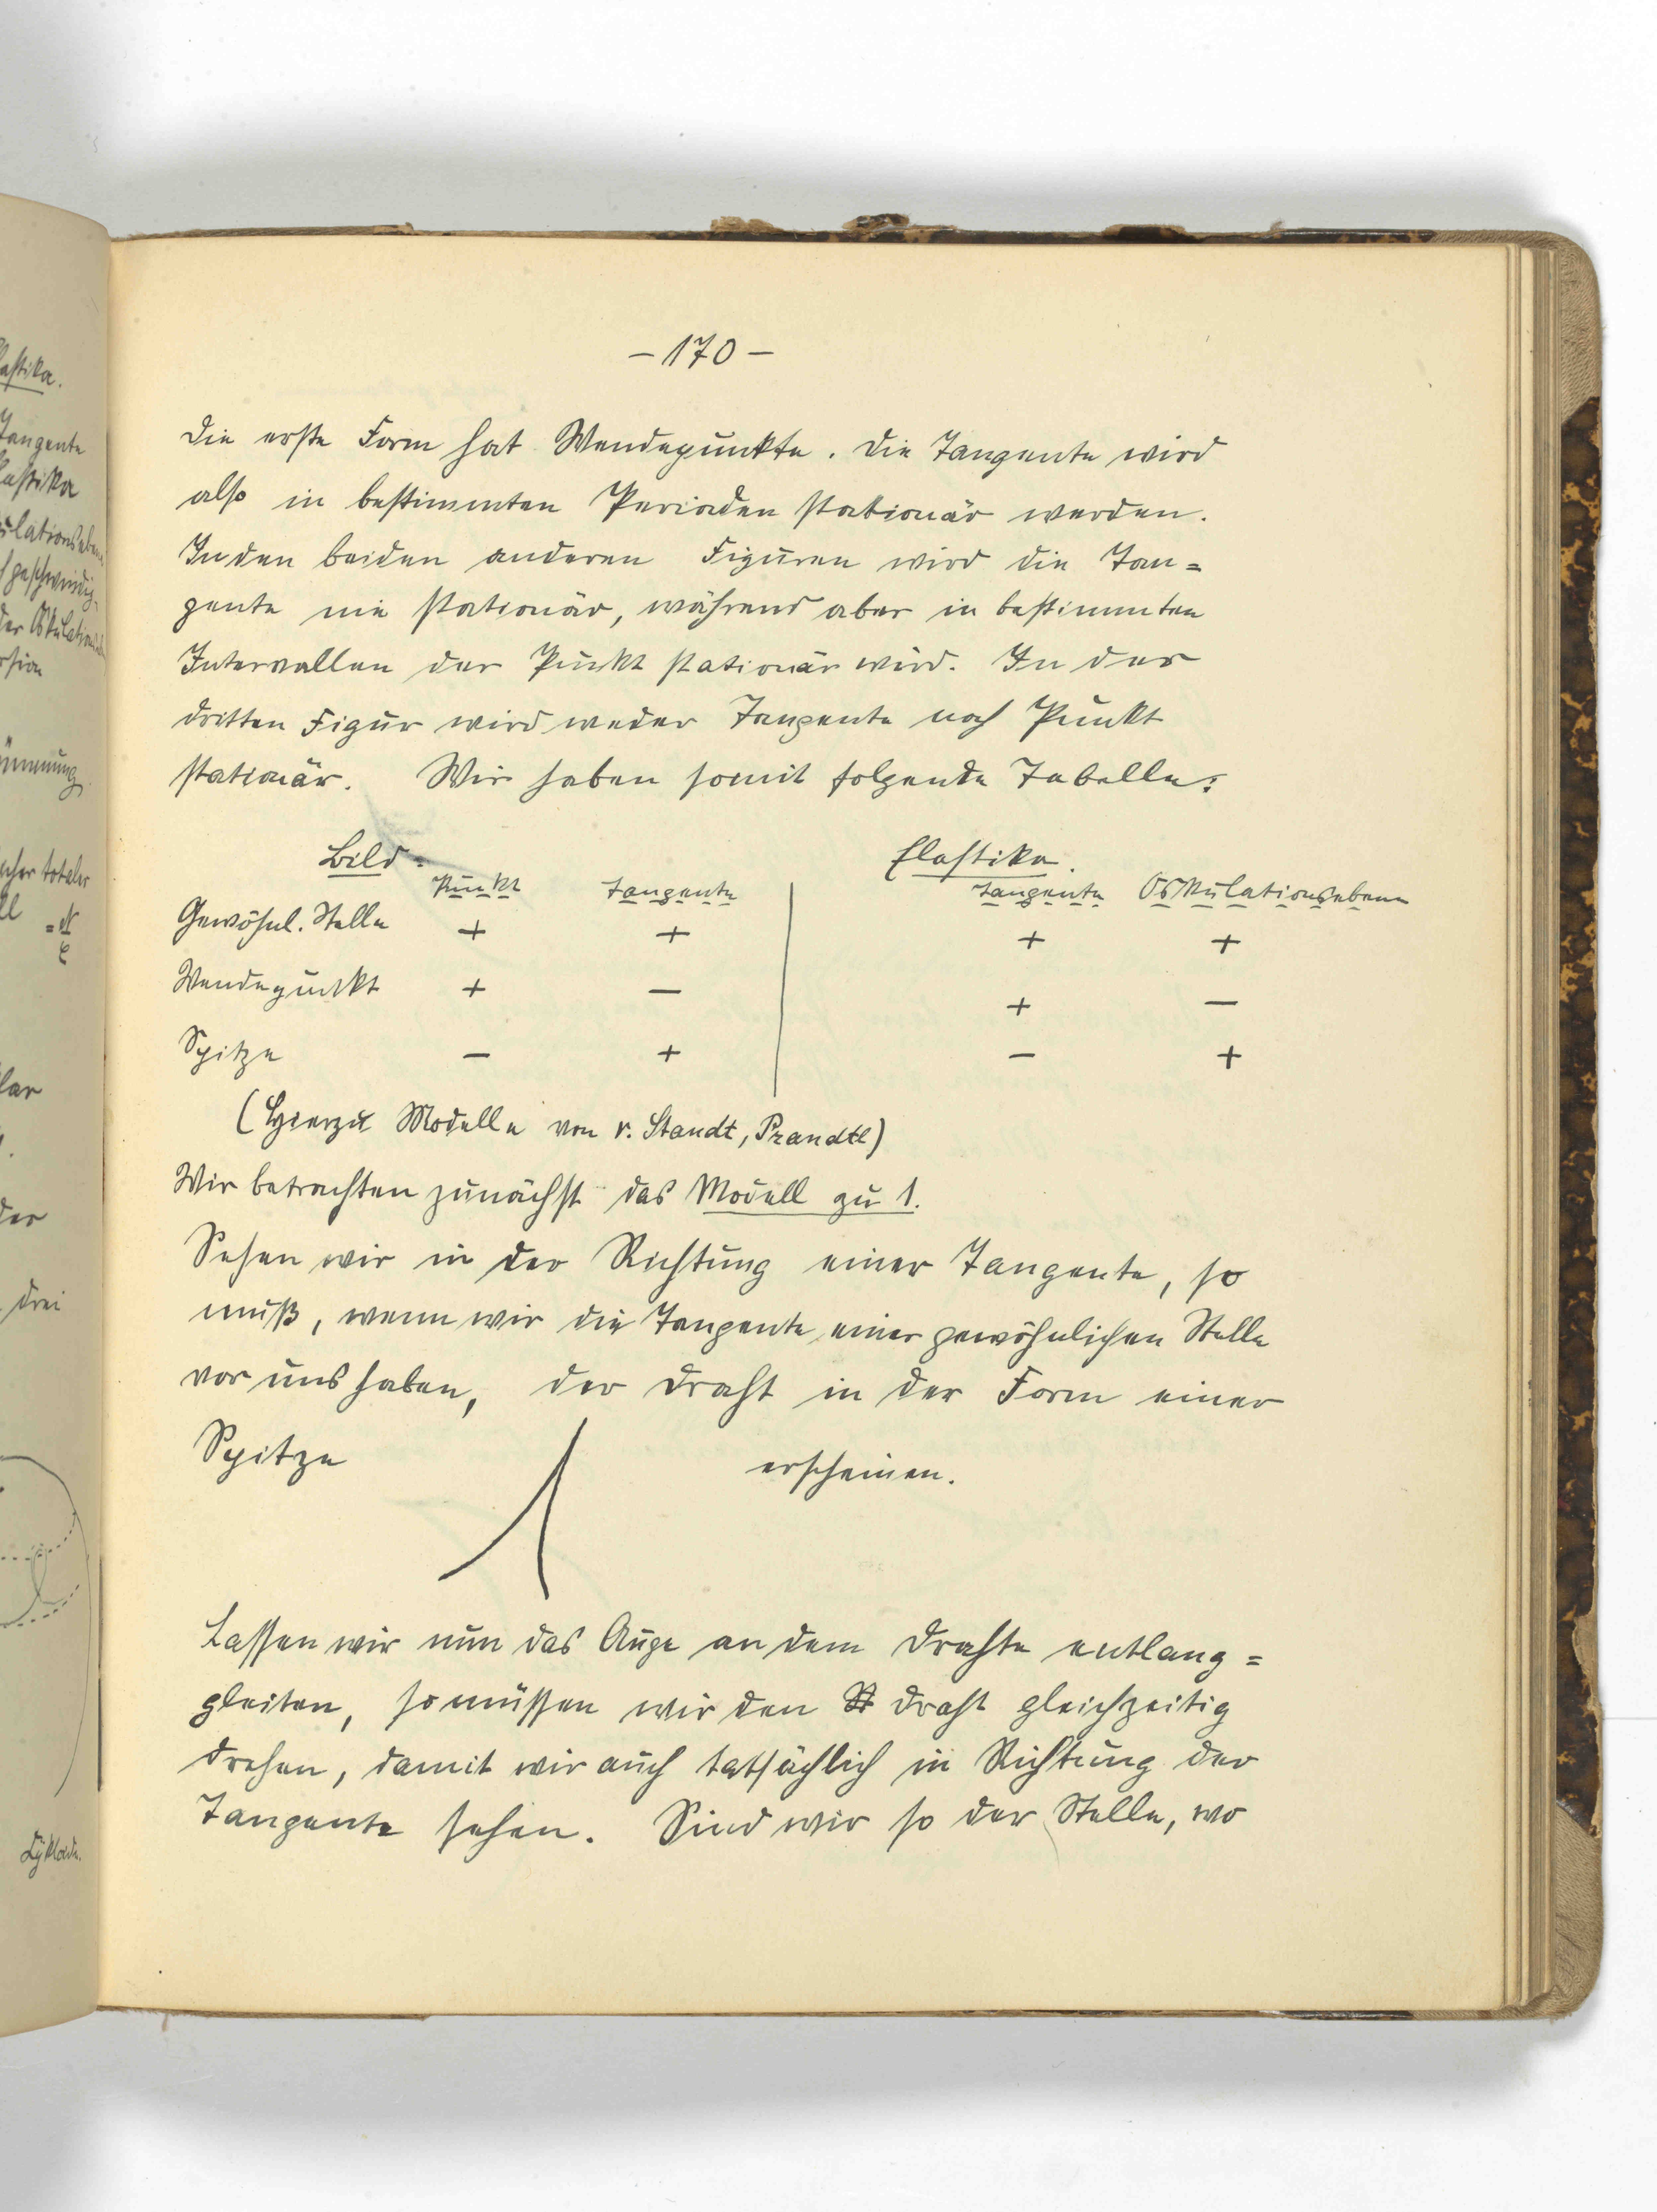 - 170 -
Die erste Form hat Wendepunkte. Die Tangente wird
also in bestimmten Perioden stationär werden.
In den beiden anderen Figuren wird die Tan=
gente nie stationär, während aber in bestimmten
Intervallen der Punkt stationär wird. In der
dritten Figur wird weder Tangente noch Punkt
stationär. Wir haben somit folgende Tabelle:
Bild. Elastika.
Punkt Tangente Tangente Oskulationsebene
Gewöhnl. Stelle + + + +
Wendepunkt + — + —
Spitze — + — +
(Hierzu Modelle von v. Staudt, Prandtl)
Wir betrachten zunächst das Modell zu 1.
Sehen wir in der Richtung einer Tangente, so
muß, wenn wir die Tangente einer gewöhnlichen Stelle
vor uns haben, der Draht in der Form einer
Spitze erscheinen.
Lassen wir nun das Auge an dem Drahte entlang=
gleiten, so müssen wir den Draht gleichzeitig
drehen, damit wir auch tatsächlich in Richtung der
Tangente sehen. Sind wir so der Stelle, wo